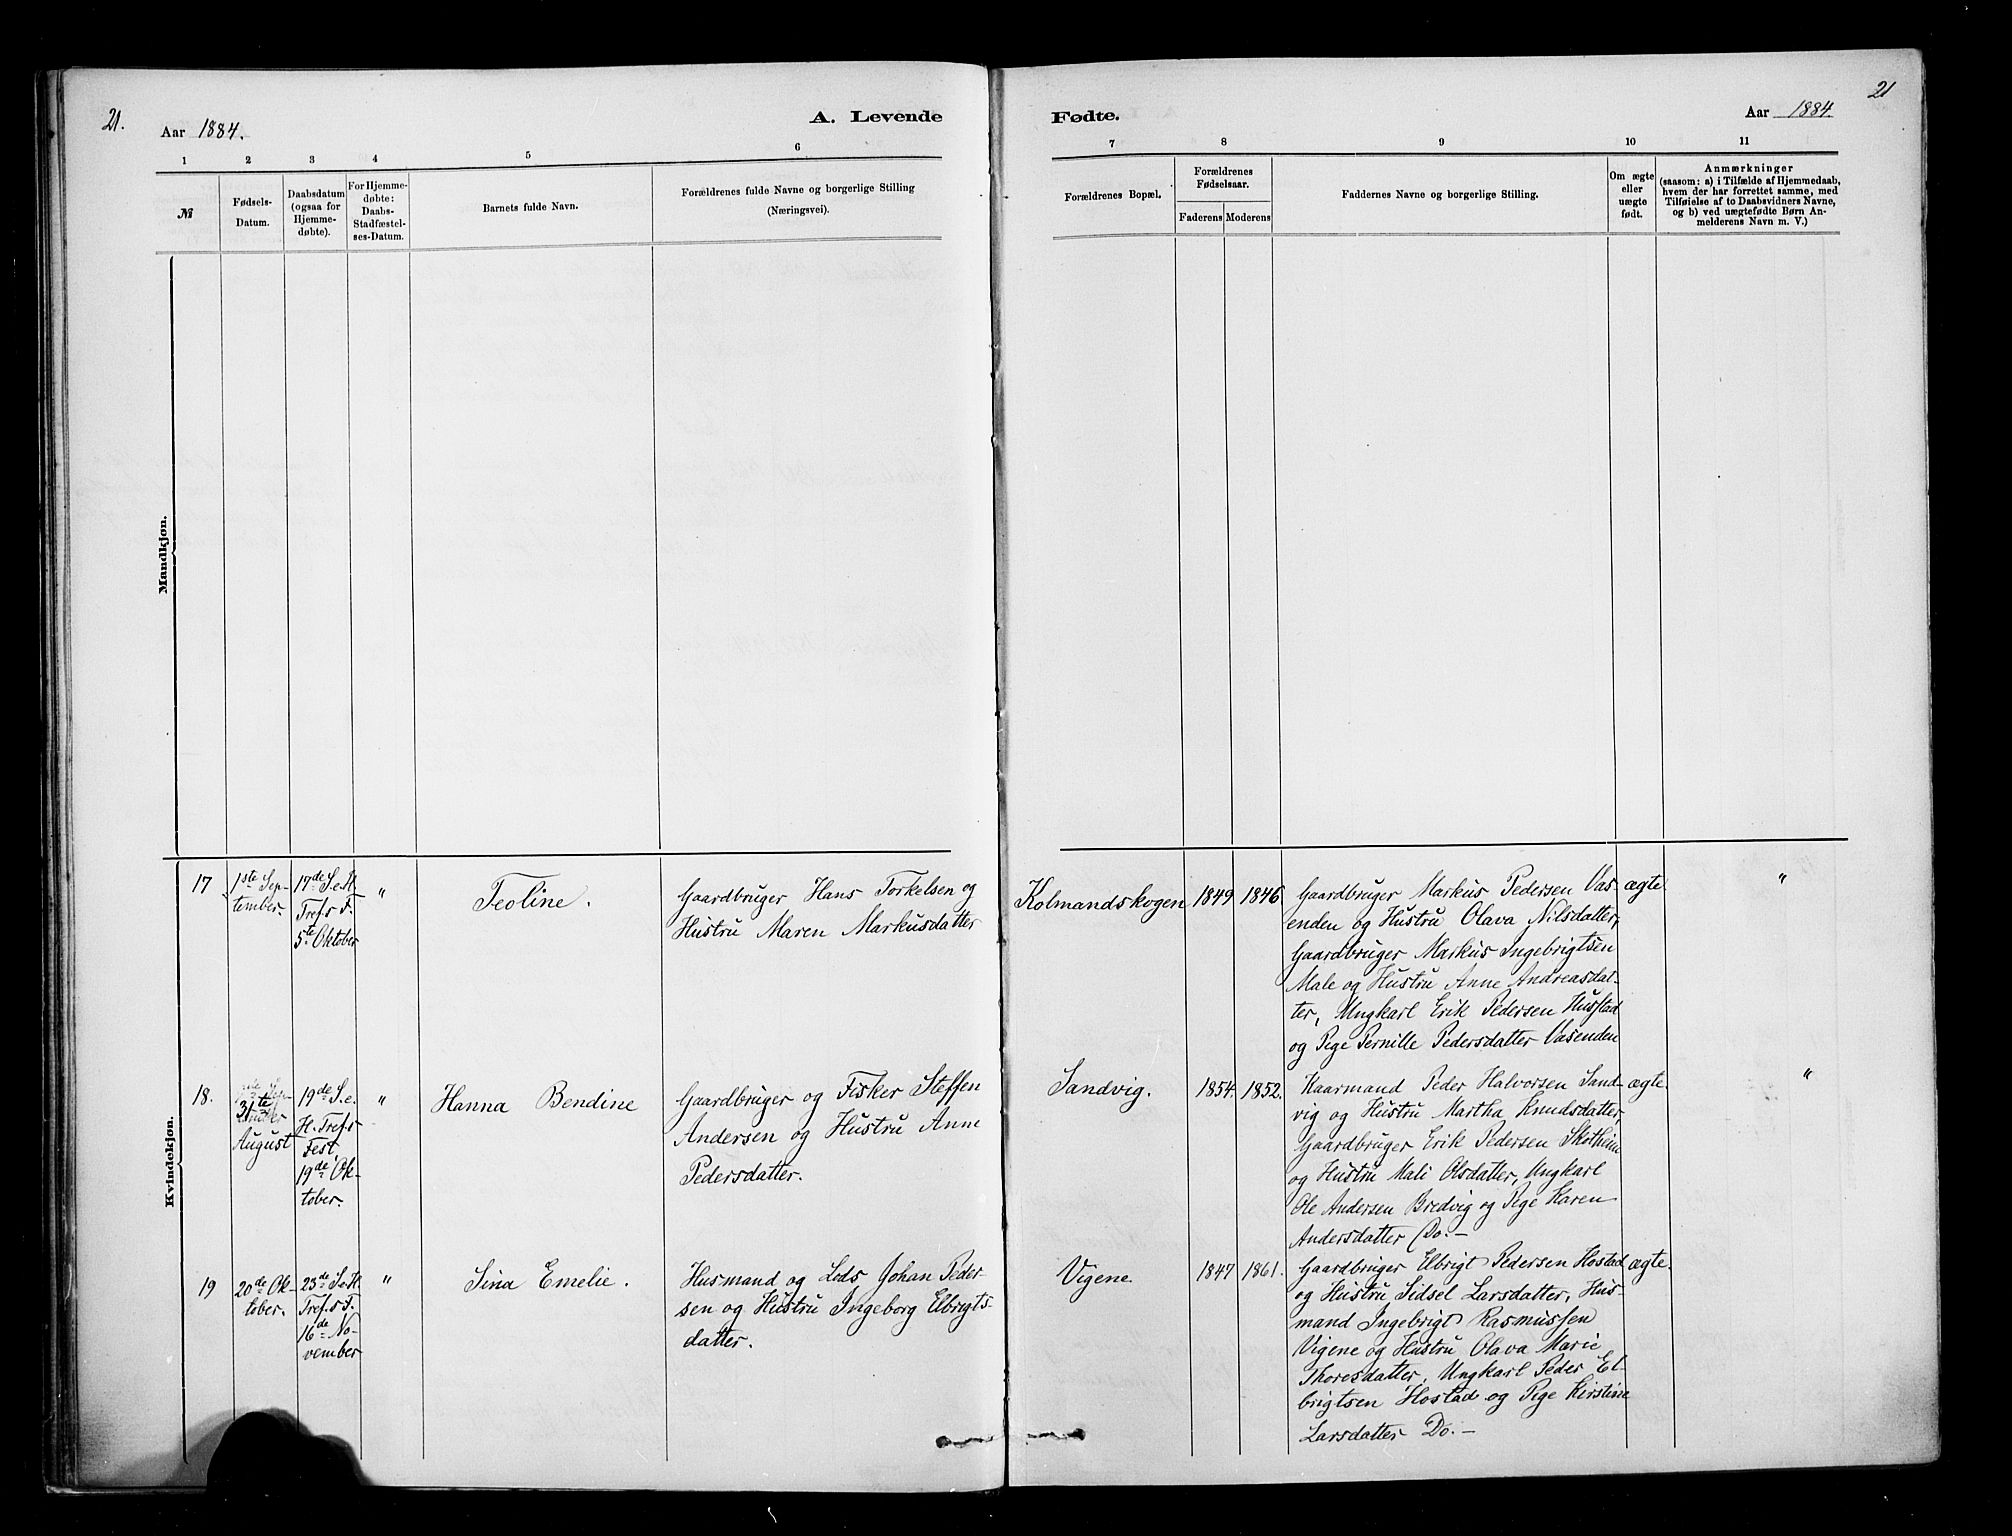 21.
Aar 1884.
A. Levende
Fødte.
Aar 1884.
21
1 2 3 4 5 6
7 8 9 10 11
№
Fødsels-
Datum.
Daabsdatum
(ogsaa for
Hjemme-
døbte).
For Hjemme-
døbte:
Daabs-
Stadfæstel-
ses-Datum.
Barnets fulde Navn.
Forældrenes fulde Navne og borgerlige Stilling
(Næringsvei).
Forældrenes Bopæl.
Forældrenes
Fødselsaar.
Faderens Moderens
Faddernes Navne og borgerlige Stilling.
Om ægte
eller
uægte
født.
Anmærkninger
(saasom: a) i Tilfælde af Hjemmedaab,
hvem der har forrettet samme, med
Tilføielse af to Daabsvidners Navne,
og b) ved uægtefødte Børn An-
melderens Navn m. V.)
Mandkjøn.
Kvindekjøn.
17
1ste Sep-
tember.
17de S.e.H.
Tref.s F.
5te Oktober
"
Teoline.
Gaardbruger Hans Torkelsen og
Hustru Maren Markusdatter
Kolmandskogen
1849
1846
Gaardbruger Markus Pedersen Vas-
enden og Hustru Olava Nilsdatter,
Gaardbruger Markus Ingebrigtsen
Male og Hustru Anne Andreasdat-
ter, Ungkarl Erik Pedersen Husstad
og Pige Pernille Pedersdatter Vasenden
ægte
"
18.
31te
August
19de S.e.
H. Tref.s
Fest
19de Ok-
tober.
"
Hanna Bendine
Gaardbruger og Fisker Steffen
Andersen og Hustru Anne
Pedersdatter.
Sandvig.
1854.
1852.
Kaarmand Peder Halvorsen Sand-
vig og Hustru Martha Knudsdatter,
Gaardbruger Erik Pedersen Skotheim
og Hustru Mali Olsdatter, Ungkarl
Ole Andersen Bredvig og Pige Karen
Andersdatter Do.-
ægte.
"
19
20de Ok-
tober.
23de S.e.H.
Tref.s F.
16de No-
vember
"
Sina Emelie.
Husmand og Lods Johan Peder-
sen og Hustru Ingeborg Elbrigts-
datter.
Vigene.
1847
1861.
Gaardbruger Elbrigt Pedersen Hostad
og Hustru Sidsel Larsdatter, Hus-
mand Ingebrigt Rasmussen
Vigene og Hustru Olava Marie
Thoresdatter, Ungkarl Peder El-
brigtsen Hostad og Pige Kirstine
Larsdatter Do.-
ægte.